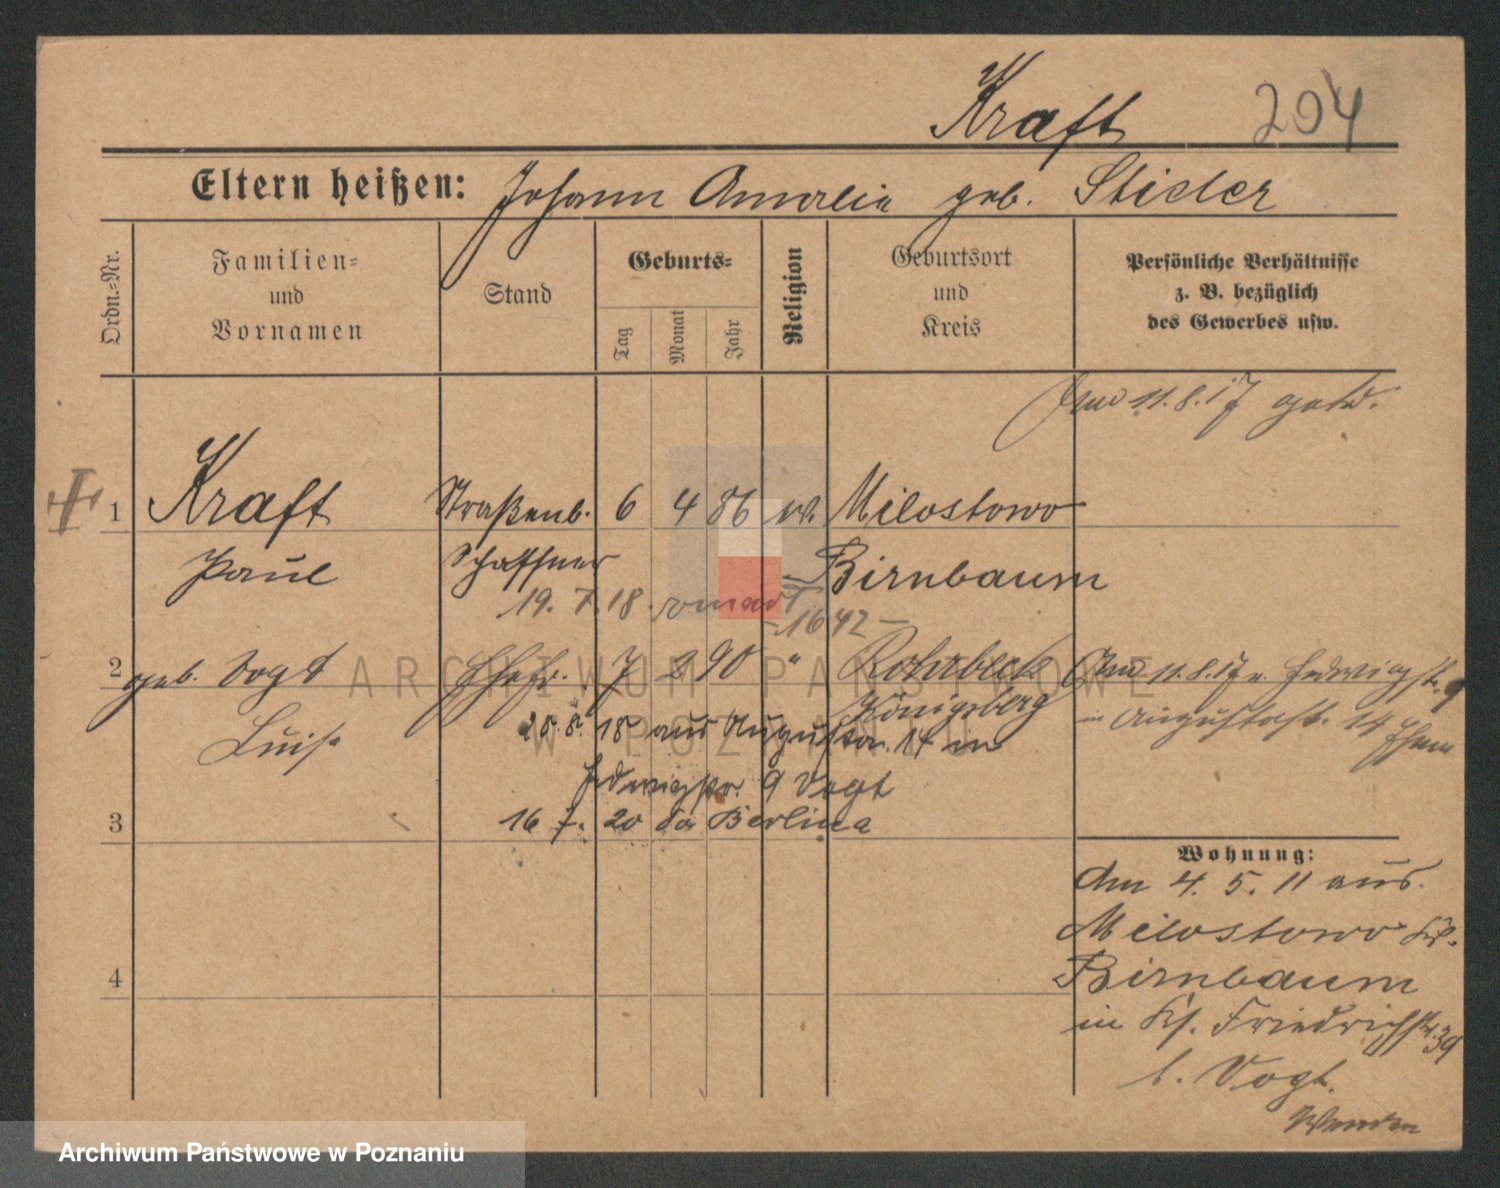 Kraft 204
Eltern heißen: Johann Amalie geb. Stieler
Ordn.-Nr.
Familien-
und
Vornamen
Stand
Geburts-
Tag
Monat
Jahr
Religion
Geburtsort
und
Kreis
Persönliche Verhältnisse
z. B. bezüglich
des Gewerbes usw.
11.8.17
1 Kraft Straßenb. 6 4 86 Milostowo
Paul Schaffner Birnbaum
19. 7. 18.
-1642-
2 geb. Vogt Ehefr. 7 2 90 " Rohrbeck 11.8.17 v. Hedwigstr. 9
Königsberg
Luise in Augustastr. 14
25.8. 18 aus Augustastr. 14 in
Hedwigstr. 9 Vogt
3 16 7. 20 Berlin
Wohnung:
Am 4. 5. 11 aus
Milostowo Kr.
4
Birnbaum
in Friedrichstr. 39
b. Vogt.
Wenden
ARCHIWUM PAŃSTWOWE
W POZNANIU
Archiwum Państwowe w Poznaniu